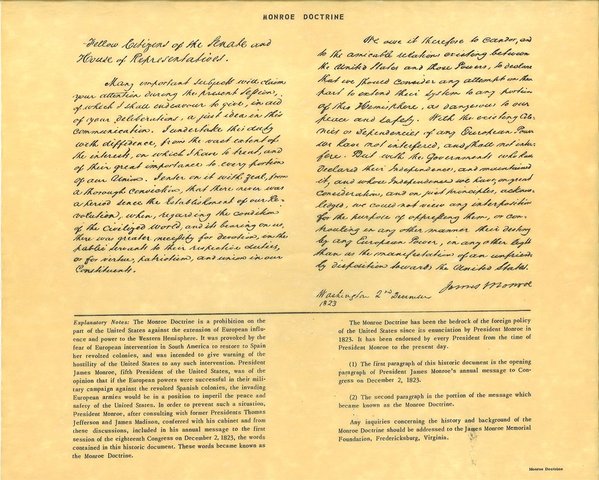 MONROE DOCTRINE
Fellow Citizens of the Senate and
House of Representatives.
Many important subjects will claim
your attention during the present Session,
of which I shall endeavour to give, in aid
of your deliberations, a just idea in this
communication. I undertake this duty
with diffidence, from the vast extent of
the interests, on which I have to treat, and
of their great importance to every portion
of our Union. I enter on it with zeal, from
a thorough conviction, that there never was
a period since the Establishment of our Re-
volution, when, regarding the condition
of the Civilized World, and its bearing on us,
there was greater necessity for devotion, in the
public servants to their respective duties,
or for virtue, patriotism, and union in our
Constituents.
We owe it therefore to candor, and
to the amicable relations existing between
the United States and those Powers, to declare
that we should consider any attempt on their
part to extend their system to any portion
of this Hemisphere, as dangerous to our
peace and safety. With the existing Colo-
nies or dependencies of any European Power
we have not interfered, and shall not inter-
fere. But with the Governments who have
declared their Independence, and maintained
it, and whose Independence we have, on great
consideration, and on just principles, acknow-
ledged, we could not view any interposition
for the purpose of oppressing them, or con-
trouling in any other manner their destiny
by any European Power, in any other light
than as the manifestation of an unfriendly
disposition towards the United States.
James Monroe
Washington 2nd December
1823
Explanatory Notes: The Monroe Doctrine is a prohibition on the
part of the United States against the extension of European influ-
ence and power to the Western Hemisphere. It was provoked by the
fear of European intervention in South America to restore to Spain
her revolted colonies, and was intended to give warning of the
hostility of the United States to any such intervention. President
James Monroe, fifth President of the United States, was of the
opinion that if the European powers were successful in their mili-
tary campaign against the revolted Spanish colonies, the invading
European armies would be in a position to imperil the peace and
safety of the United States. In order to prevent such a situation,
President Monroe, after consulting with former Presidents Thomas
Jefferson and James Madison, conferred with his cabinet and from
these discussions, included in his annual message to the first
session of the eighteenth Congress on December 2, 1823, the words
contained in this historic document. These words became known as
the Monroe Doctrine.
The Monroe Doctrine has been the bedrock of the foreign policy
of the United States since its enunciation by President Monroe in
1823. It has been endorsed by every President from the time of
President Monroe to the present day.
(1) The first paragraph of this historic document is the opening
paragraph of President James Monroe's annual message to Con-
gress on December 2, 1823.
(2) The second paragraph is the portion of the message which
became known as the Monroe Doctrine.
Any inquiries concerning the history and background of the
Monroe Doctrine should be addressed to the James Monroe Memorial
Foundation, Fredericksburg, Virginia.
Monroe Doctrine